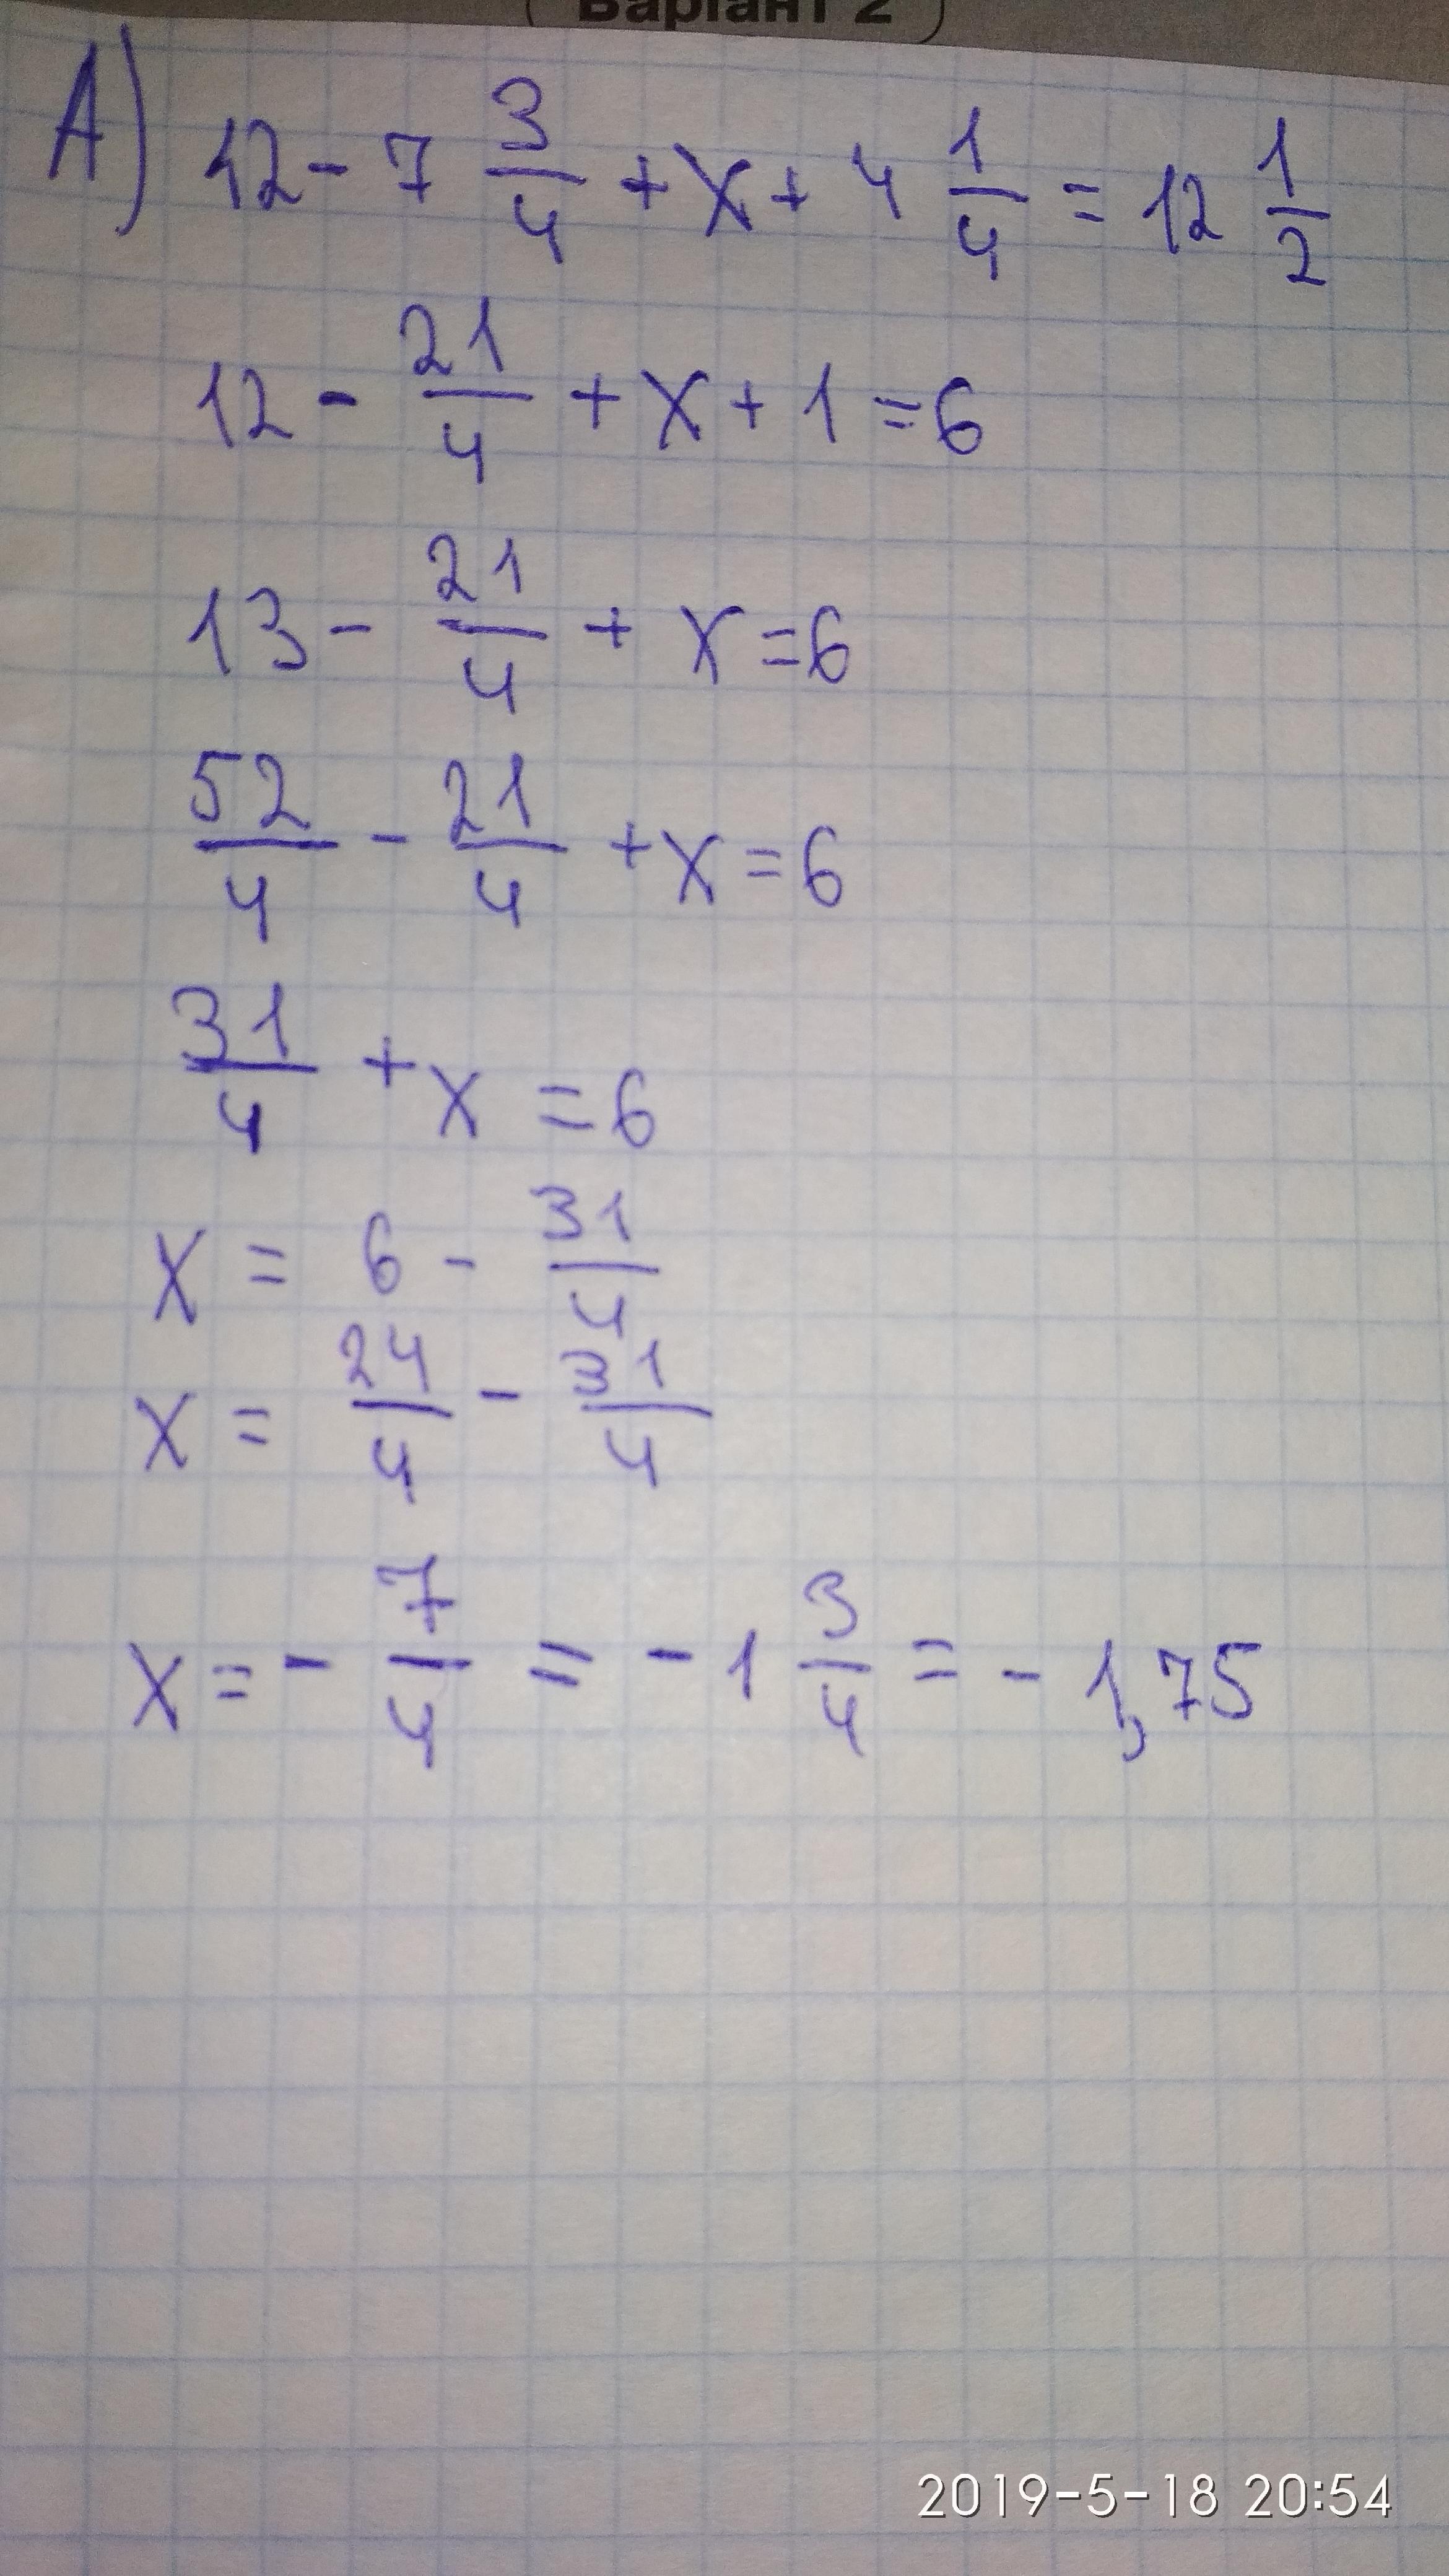 Варіант 2
А) 12 - 7 3/4 + x + 4 1/4 = 12 1/2
12 - 21/4 + x + 1 = 6
13 - 21/4 + x = 6
52/4 - 21/4 + x = 6
31/4 + x = 6
x = 6 - 31/4
x = 24/4 - 31/4
x = - 7/4 = - 1 3/4 = - 1,75
2019-5-18 20:54